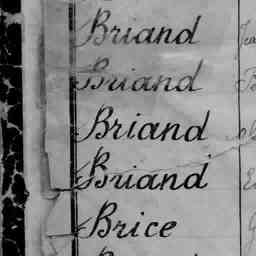 Briand
Briand
Briand
Briand
Brice